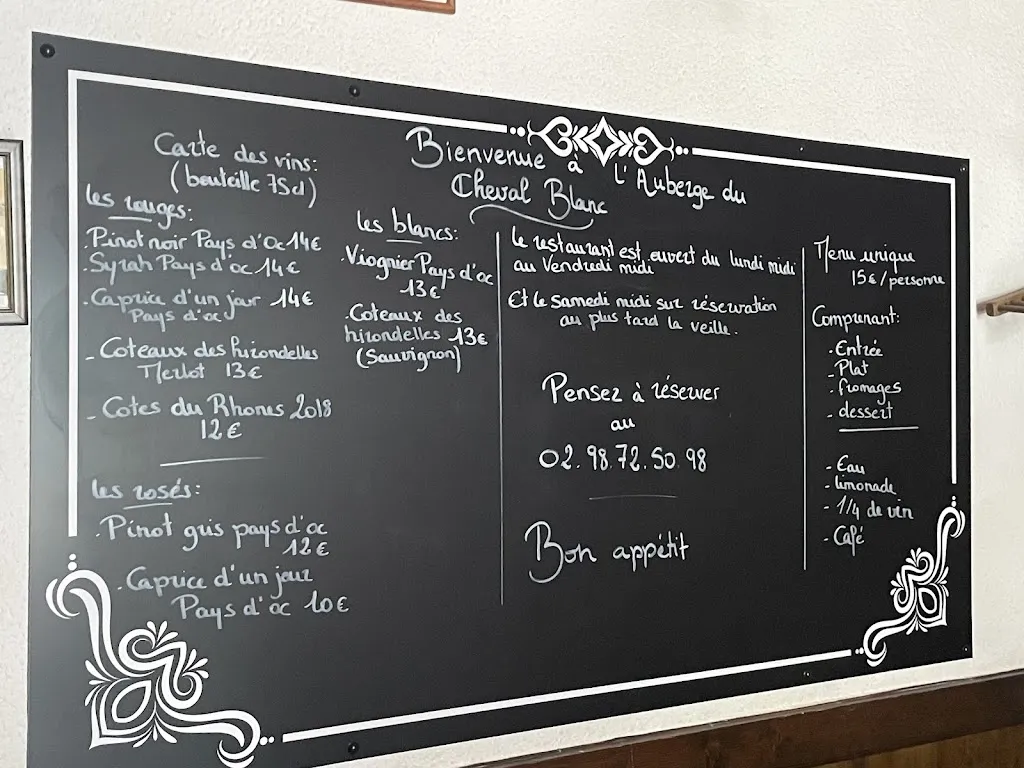 Bienvenue à l'Auberge du
Cheval Blanc
Carte des vins:
(bouteille 75cl)
les rouges:
.Pinot noir Pays d'Oc 14€
.Syrah Pays d'oc 14€
.Caprice d'un jour 14€
Pays d'oc
- Coteaux des hirondelles
Merlot 13€
- Cotes du Rhones 2018
12€
les rosés:
.Pinot gris pays d'oc
12€
.Caprice d'un jour
Pays d'oc 10€
les blancs:
.Viognier Pays d'oc
13€
.Coteaux des
hirondelles 13€
(Sauvignon)
le restaurant est ouvert du lundi midi
au Vendredi midi
Et le samedi midi sur réservation
au plus tard la veille.
Pensez à réserver
au
02.98.72.50.98
Bon appétit
Menu unique
15€/personne
Comprenant:
- Entrée
- Plat
- fromages
- dessert
- Eau
- limonade
- 1/4 de vin
- Café